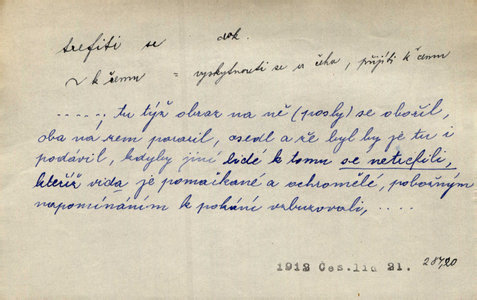 trefiti se dok.
~ k čemu = vyskytnouti se u čeho, přijíti k čemu
......, tu týž obraz na ně (posly) se obořil,
oba na zem porazil, osedl a že byl by je tu i
podávil, kdyby jiní lidé k tomu se netrefili,
kteříž vida je pomačkané a ochromělé, pobožným
napomínáním k pokání vzbuzovali, ....
1912 Čes.lid 21. 287,20